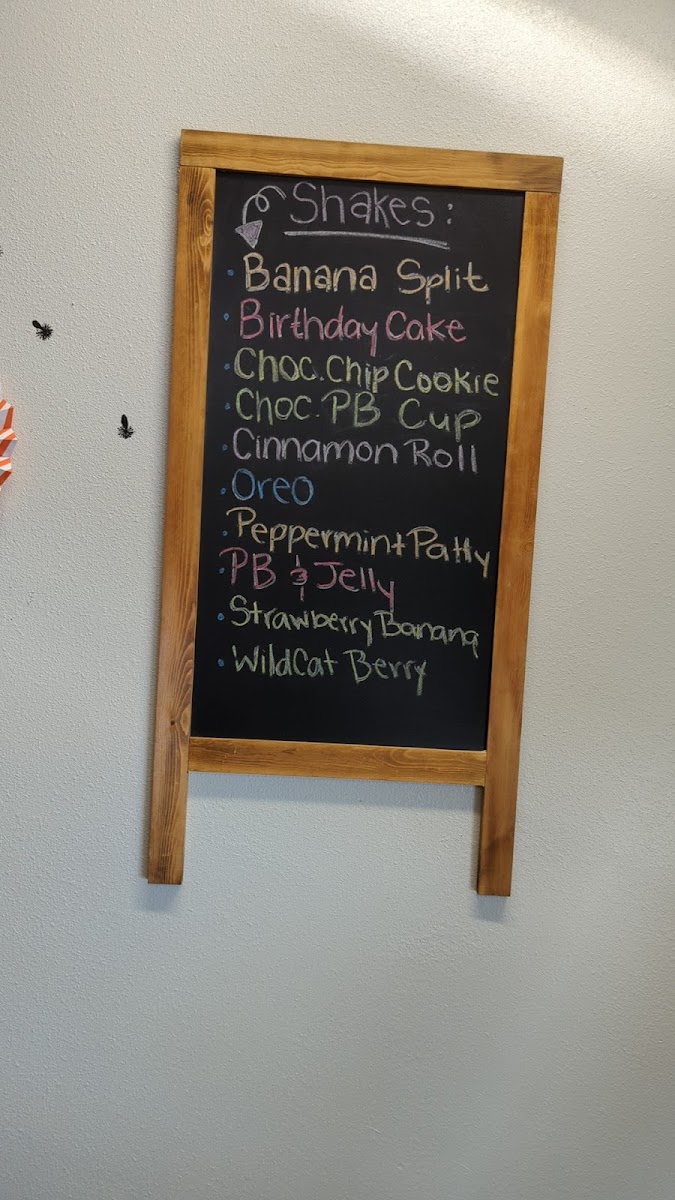 Shakes:
• Banana Split
• Birthday Cake
• Choc. Chip Cookie
• Choc. PB Cup
• Cinnamon Roll
• Oreo
• Peppermint Patty
• PB & Jelly
• Strawberry Banana
• WildCat Berry